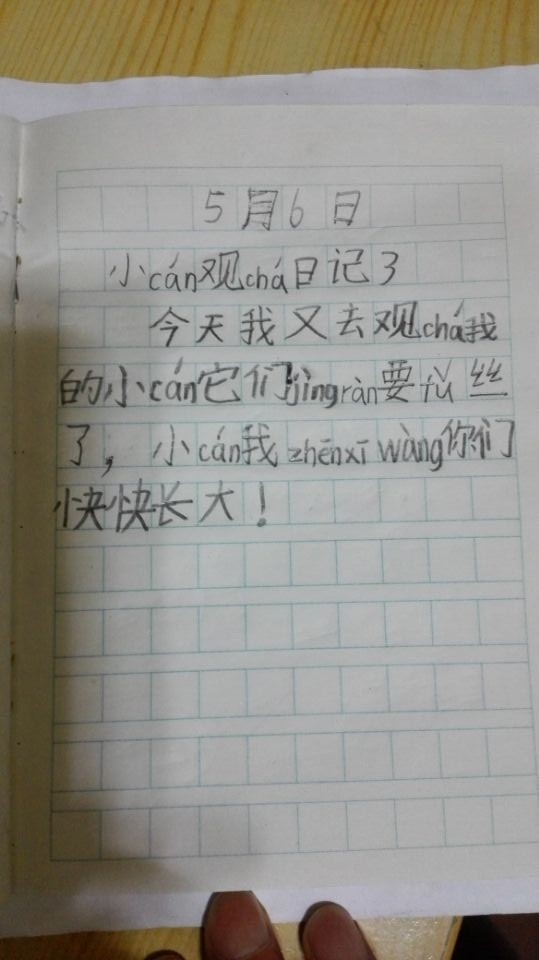 5月6日
小cán观chá日记3
今天我又去观chá我
的小cán它们jìngràn要tǔ丝
了，小cán我zhēnxīwàng你们
快快长大！